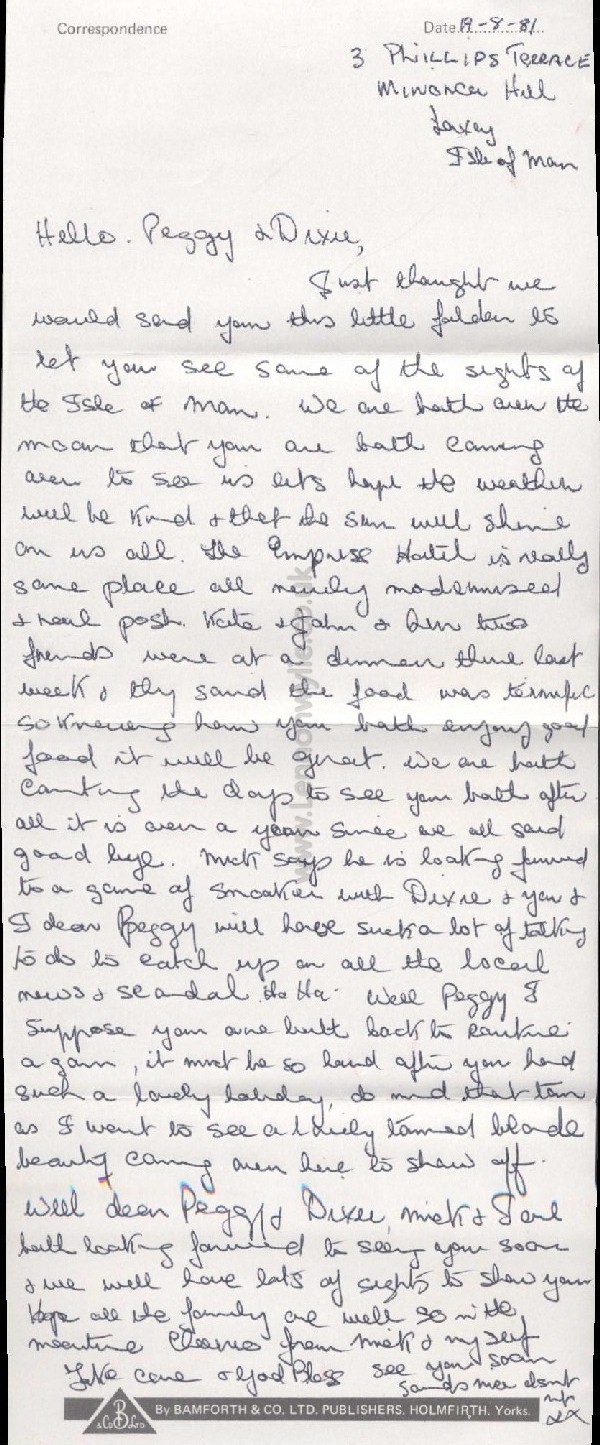 Correspondence
Date 19-8-81
3 Phillips Terrace
Minorca Hill
Laxey
Isle of Man
Hello. Peggy & Dixie,
Just thought we
would send you this little folder to
let you see some of the sights of
the Isle of Man. We are both over the
moon that you are both coming
over to see us lets hope the weather
will be kind & that the sun will shine
on us all. The Empress Hotel is really
some place all newly modernised
& real posh. Kate & John & her two
friends were at a dinner there last
week & they said the food was terrific
so knowing how you both enjoy good
food it will be great. We are both
counting the days to see you both after
all it is over a year since we all said
good bye. Mick says he is looking forward
to a game of snooker with Dixie & you &
I dear Peggy will have such a lot of talking
to do to catch up on all the local
news & scandal. Ha Ha. Well Peggy I
suppose you are both back to routine
again, it must be so hard after you had
such a lovely holiday, do mind that tan
as I want to see a lovely tanned blonde
beauty coming over here to show off.
Well dear Peggy & Dixie, Mick & I are
both looking forward to seeing you soon
& we will have lots of sights to show you
Hope all the family are well so in the
meantime Cheerio from Mick & myself
Take care & God Bless see you soon
www.Lennonwylie.co.uk
B
& Co Ltd
By BAMFORTH & CO. LTD. PUBLISHERS. HOLMFIRTH. Yorks.